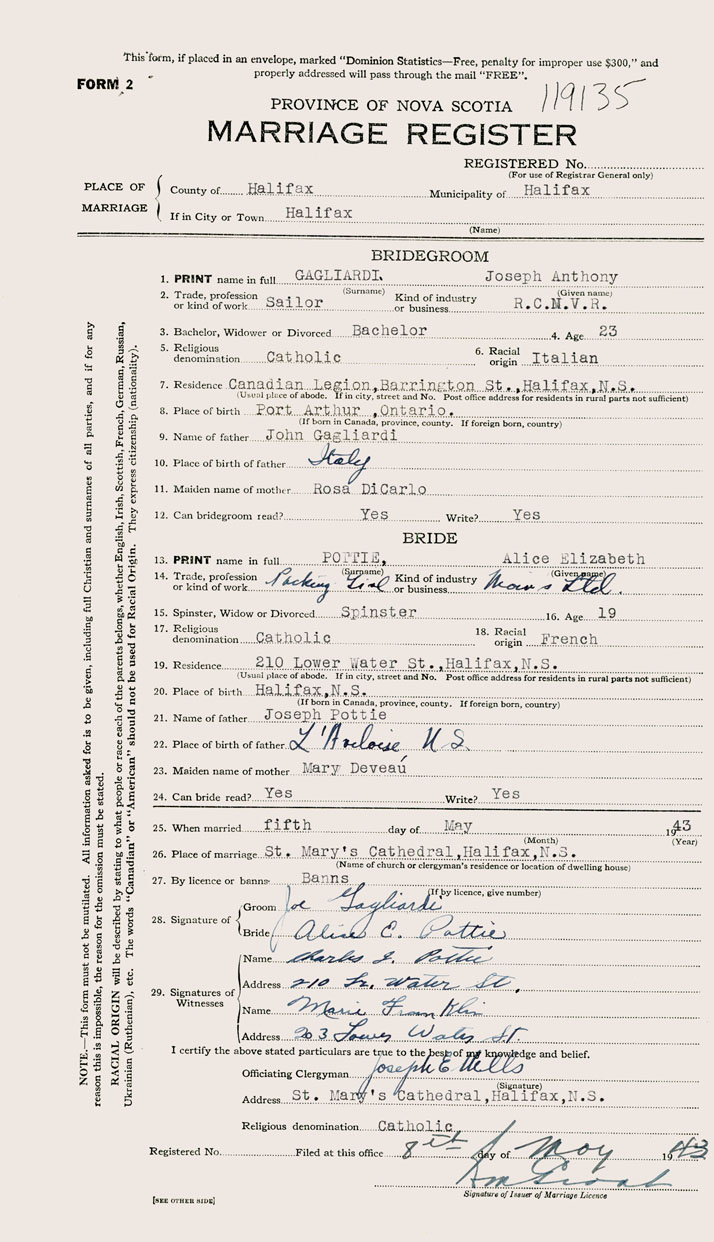 This form, if placed in an envelope, marked "Dominion Statistics—Free, penalty for improper use $300," and
properly addressed will pass through the mail "FREE".
FORM 2
119135
PROVINCE OF NOVA SCOTIA
MARRIAGE REGISTER
REGISTERED No.
(For use of Registrar General only)
PLACE OF MARRIAGE
County of Halifax Municipality of Halifax
If in City or Town Halifax
(Name)
BRIDEGROOM
1. PRINT name in full GAGLIARDI, Joseph Anthony
(Surname) (Given name)
2. Trade, profession or kind of work Sailor Kind of industry or business R.C.N.V.R.
3. Bachelor, Widower or Divorced Bachelor 4. Age 23
5. Religious denomination Catholic 6. Racial origin Italian
7. Residence Canadian Legion,Barrington St.,Halifax,N.S.
(Usual place of abode. If in city, street and No. Post office address for residents in rural parts not sufficient)
8. Place of birth Port Arthur ,Ontario.
(If born in Canada, province, county. If foreign born, country)
9. Name of father John Gagliardi
10. Place of birth of father Italy
11. Maiden name of mother Rosa DiCarlo
12. Can bridegroom read? Yes Write? Yes
BRIDE
13. PRINT name in full POTTIE, Alice Elizabeth
(Surname) (Given name)
14. Trade, profession or kind of work Packing Girl Kind of industry or business Moirs Ltd.
15. Spinster, Widow or Divorced Spinster 16. Age 19
17. Religious denomination Catholic 18. Racial origin French
19. Residence 210 Lower Water St.,Halifax,N.S.
(Usual place of abode. If in city, street and No. Post office address for residents in rural parts not sufficient)
20. Place of birth Halifax,N.S.
(If born in Canada, province, county. If foreign born, country)
21. Name of father Joseph Pottie
22. Place of birth of father N.S.
23. Maiden name of mother Mary Deveau
24. Can bride read? Yes Write? Yes
25. When married fifth day of May 1943
(Month) (Year)
26. Place of marriage St. Mary's Cathedral,Halifax,N.S.
(Name of church or clergyman's residence or location of dwelling house)
27. By licence or banns Banns
(If by licence, give number)
28. Signature of
Groom Joe Gagliardi
Bride Alice E. Pottie
29. Signatures of Witnesses
Name Charles J. Pottie
Address 210 Lr. Water St.
Name Marie Franklin
Address 203 Lower Water St.
I certify the above stated particulars are true to the best of my knowledge and belief.
Officiating Clergyman Joseph E Mills
(Signature)
Address St. Mary's Cathedral,Halifax,N.S.
Religious denomination Catholic
Registered No. Filed at this office 8th day of May 1943
Signature of Issuer of Marriage Licence
[SEE OTHER SIDE]
NOTE.—This form must not be mutilated. All information asked for is to be given, including full Christian and surnames of all parties, and if for any
reason this is impossible, the reason for the omission must be stated.
RACIAL ORIGIN will be described by stating to what people or race each of the parents belongs, whether English, Irish, Scottish, French, German, Russian,
Ukrainian (Ruthenian), etc. The words "Canadian" or "American" should not be used for Racial Origin. They express citizenship (nationality).